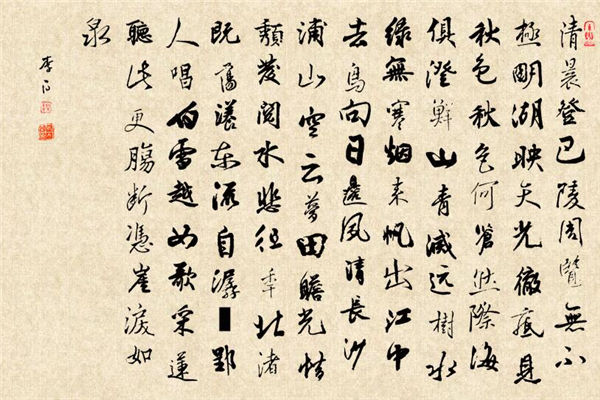 清晨登巴陵周覽無不
極明湖映天光徹底見
秋色秋色何蒼然際海
俱澄鮮山青滅远樹水
绿無寒烟来帆出江中
去鳥向日邊風清長沙
浦山空云夢田瞻光惜
頹髮閱水悲徂年北渚
既蕩漾东流自潺█郢
人唱白雪越女歌采蓮
聽此更腸断憑崖淚如
泉
李白